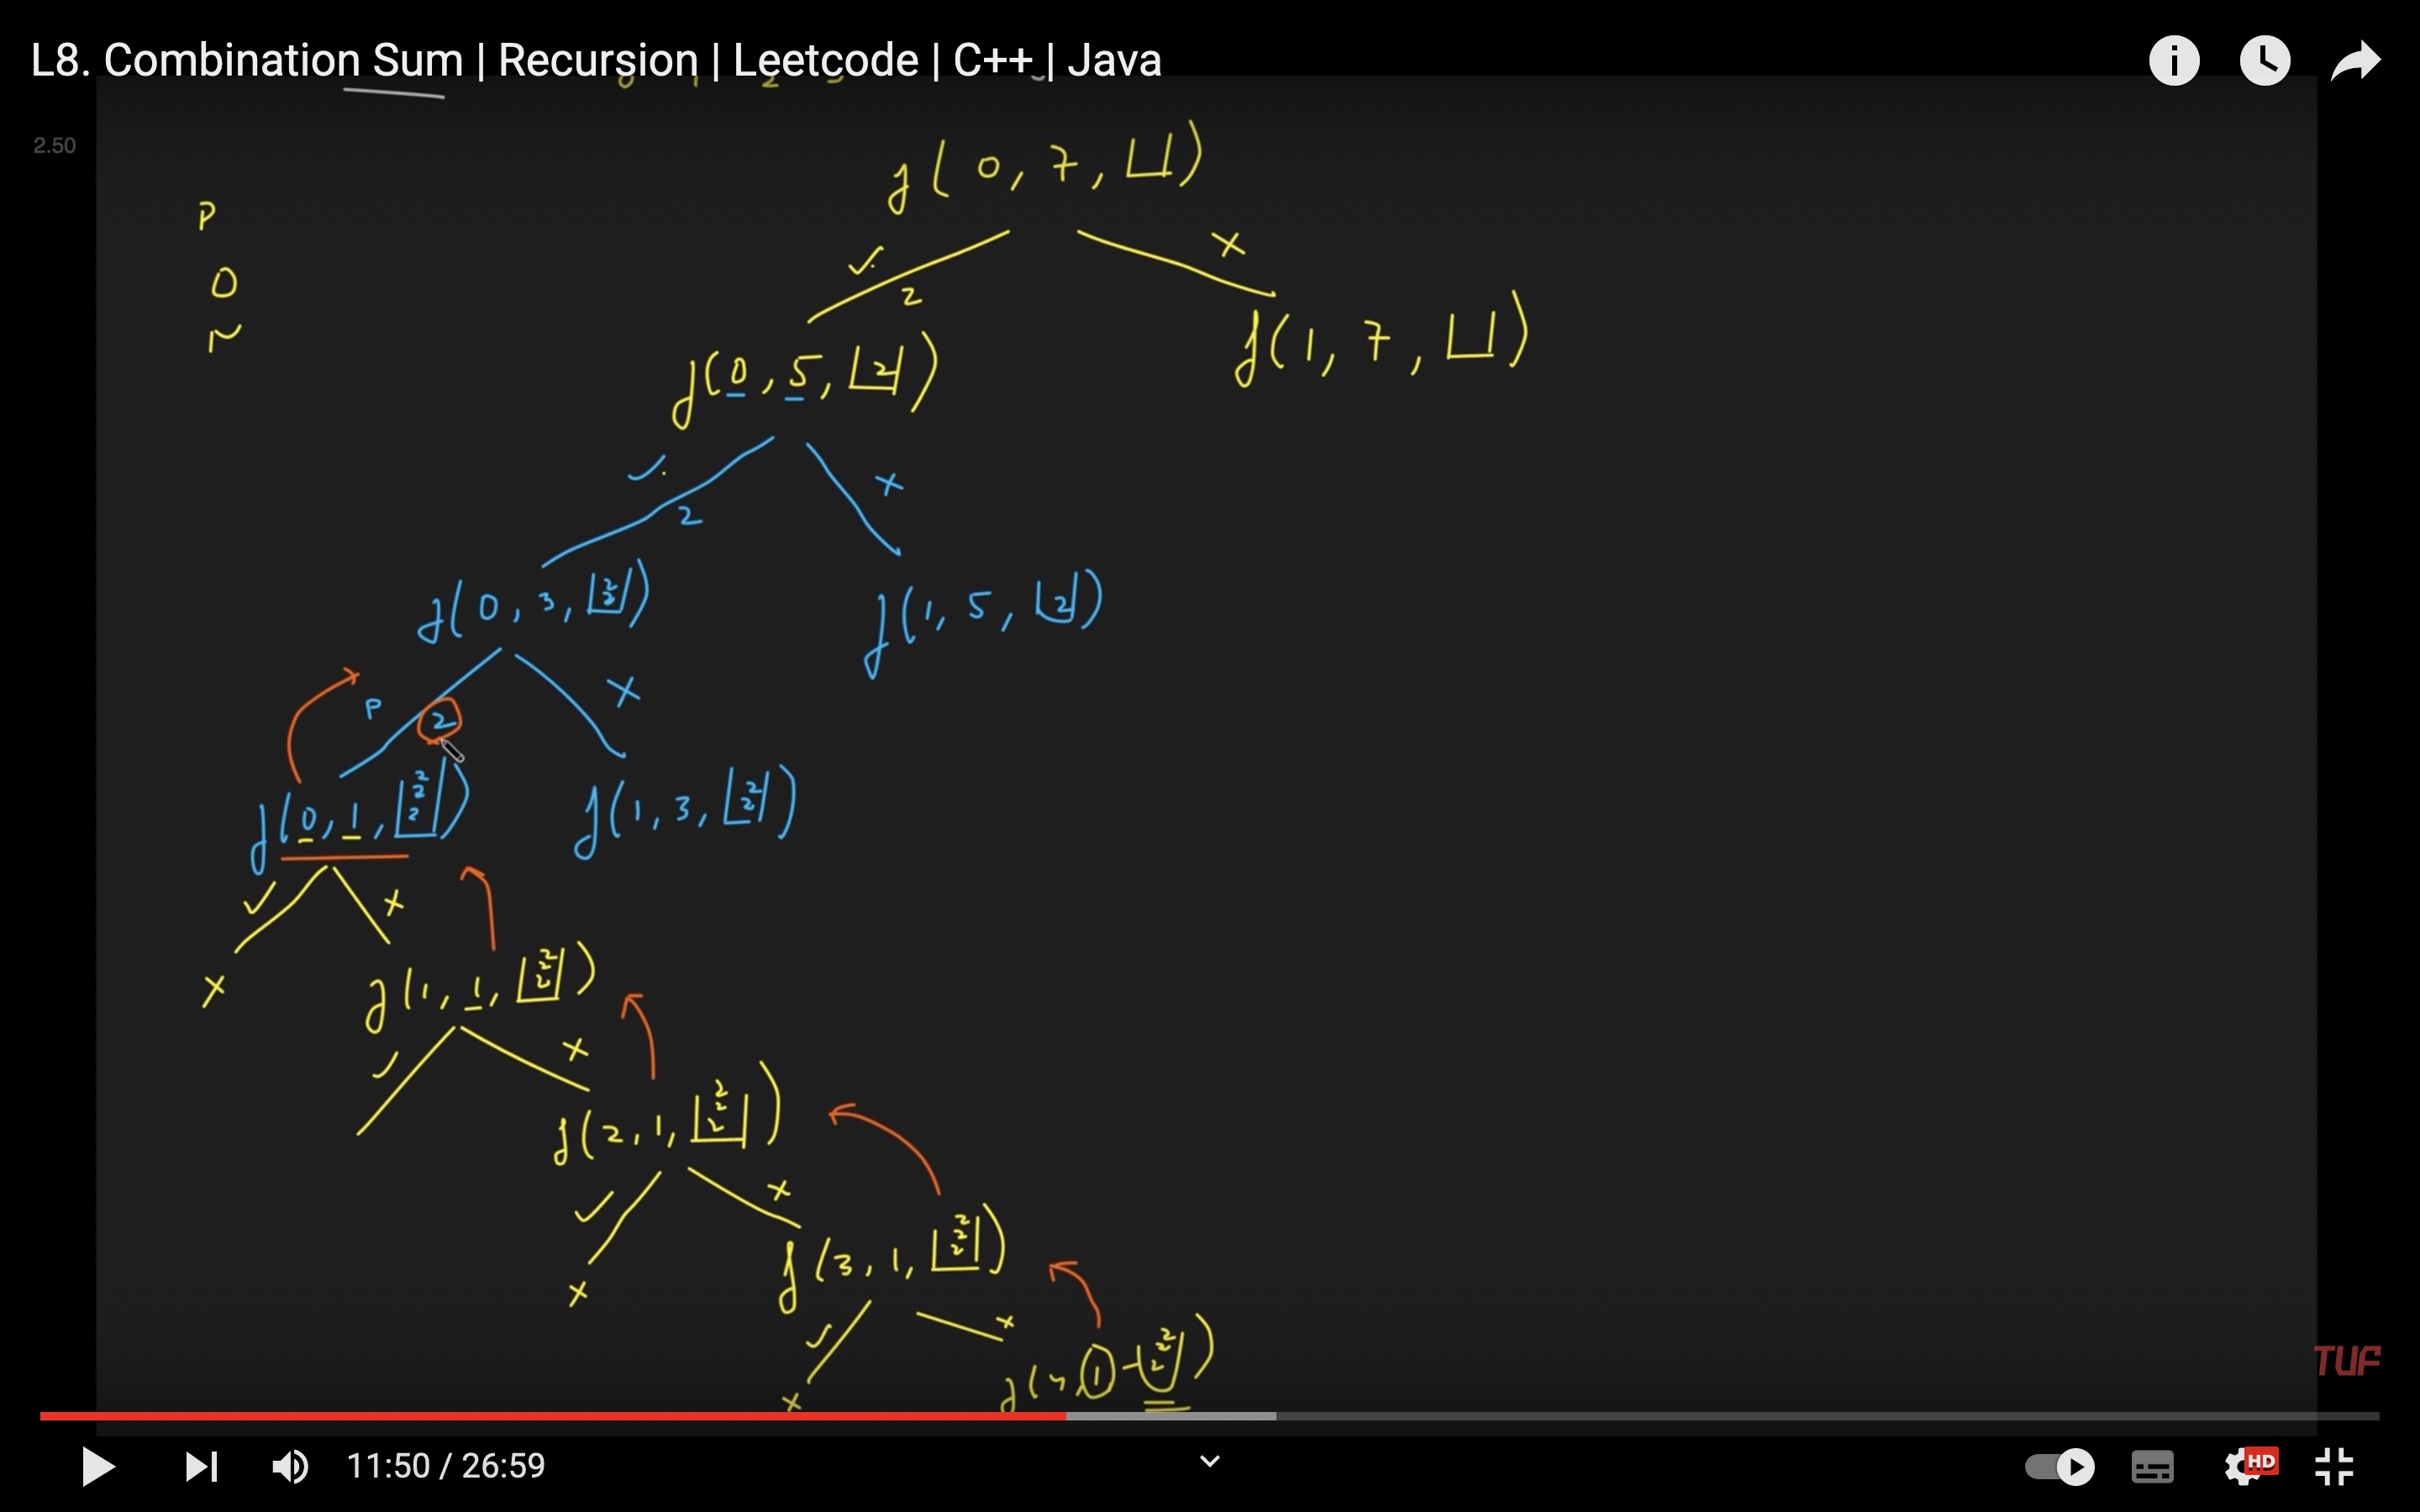 L8. Combination Sum | Recursion | Leetcode | C++ | Java
2.50
f(0, 7, [])
P
O
2
f(0, 5, [2])
f(1, 7, [])
2
f(0, 3, [2 2])
f(1, 5, [2])
P 2
f(0, 1, [2 2 2])
f(1, 3, [2 2])
f(1, 1, [2 2 2])
f(2, 1, [2 2 2])
f(3, 1, [2 2 2])
TUF
11:50 / 26:59
HD